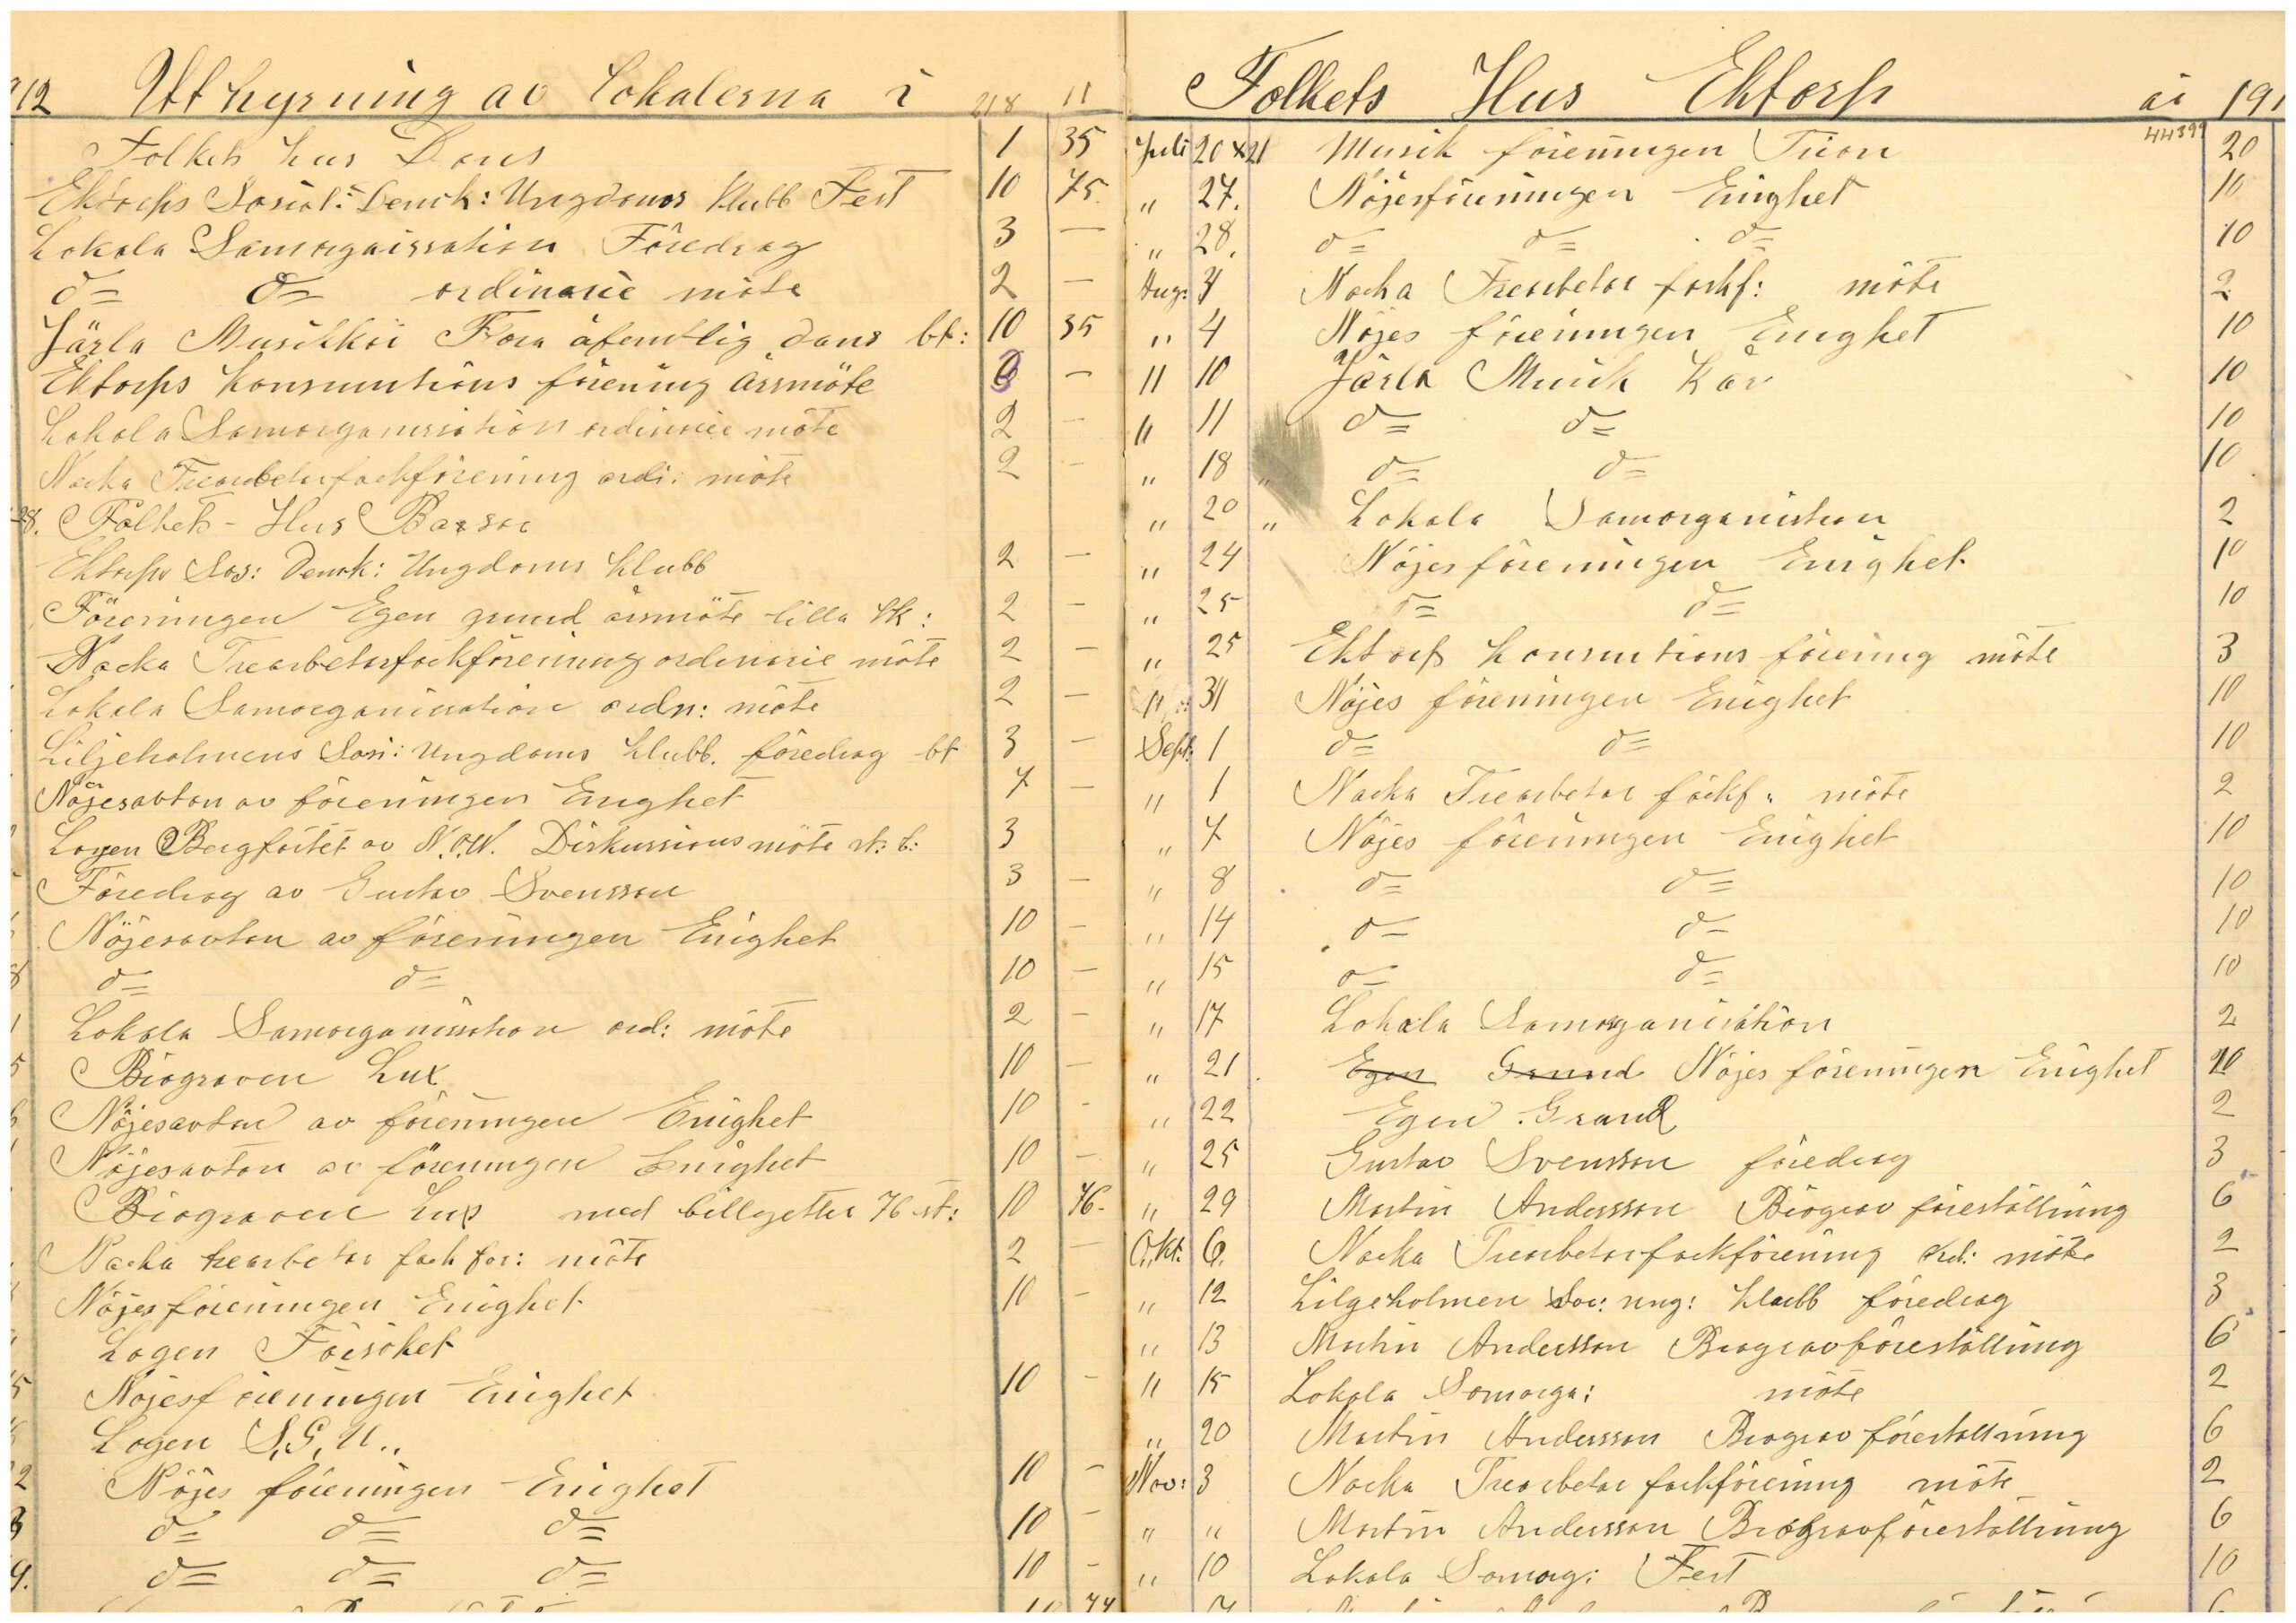 912 Uthyrning av Lokalerna i 218 11
Folkets hus Dans 1 35
Ektorps Social: Demok: Ungdoms Klubb Fest 10 75.
Lokala Samorgaissation Föredrag 3 —
d= d= ordinarie möte 2 —
Järla Musikkår Fora åfentlig dans bt: 10 35
Ektorps Konsumtions förening årsmöte 3 —
Lokala Samorganisation ordinarie möte 2 -
Nacka Trearbetarfackförening ordi: möte 2 -
28. Folkets - Hus Basar
Ektorps Sos: Demk: Ungdoms Klubb 2 —
Föreningen Egen grund årsmöte lilla 2 -
Nacka Trearbetarfackförening ordinarie möte 2 -
Lokala Samorganisation ordn: möte 2 —
Liljeholmens Sosi: Ungdoms Klubb. föredrag bt 3 -
Nöjesavton av föreningen Enighet 7 -
Logen Bergfästet av N.O.W. Diskussions möte st: b: 3
Föredrag av Gustav Svensson 3 —
Nöjesavton av föreningen Enighet 10 -
8 d= d= 10 -
1 Lokala Samorganisation ord: möte 2 -
5 Biograven Lux 10 -
Nöjesavton av föreningen Enighet 10 -
Nöjesavton av föreningen Enighet 10 -
Biograven Lux med billyetter 76 st: 10 76-
Nacka trearbetar fack för: möte 2 —
Nöjesföreningen Enighet 10 -
Logen Försöket
5 Nöjesföreningen Enighet 10 -
Logen S.G.U..
2 Nöjes föreningen Enighet 10 -
3 d= d= d= 10 -
9. d= d= d= 10 -
Folkets Hus Ektorp år 191
44399
Juli 20 x 21 Musik föreningen Trion 20
" 27. Nöjesföreningen Enighet 10
" 28. d= d= d= 10
Aug: 4 Nacka Trearbetar fackf: möte 2
" 4 Nöjes föreningen Enighet 10
" 10 Järla Musik Kår 10
" 11 d= d= 10
" 18 " d= d= 10
" 20 " Lokala Samorganistion 2
" 24 Nöjesföreningen Enighet 10
" 25 d= d= 10
" 25 Ektorp Konsumtions förening möte 3
" 31 Nöjes föreningen Enighet 10
Sept: 1 d= d= 10
" 1 Nacka Trearbetar fackf: möte 2
" 7 Nöjes föreningen Enighet 10
" 8 d= d= 10
" 14 d= d= 10
" 15 d= d= 10
" 17 Lokala Samorganisation 2
" 21 Egen Grund Nöjes föreningen Enighet 10
" 22 Egen Grund 2
" 25 Gustav Svensson föredrag 3
" 29 Martin Andersson Biograv föreställning 6
Okt: 6. Nacka Trearbetarfackförening ord: möte 2
" 12 Liljeholmen Soc: ung: Klubb föredrag 3
" 13 Martin Andersson Biogravföreställning 6
" 15 Lokala Samorga: möte 2
" 20 Martin Andersson Biograv föreställning 6
Nov: 3 Nacka Trearbetar fackförening möte 2
" " Martin Andersson Biogravföreställning 6
" 10 Lokala Samorg: Fest 10